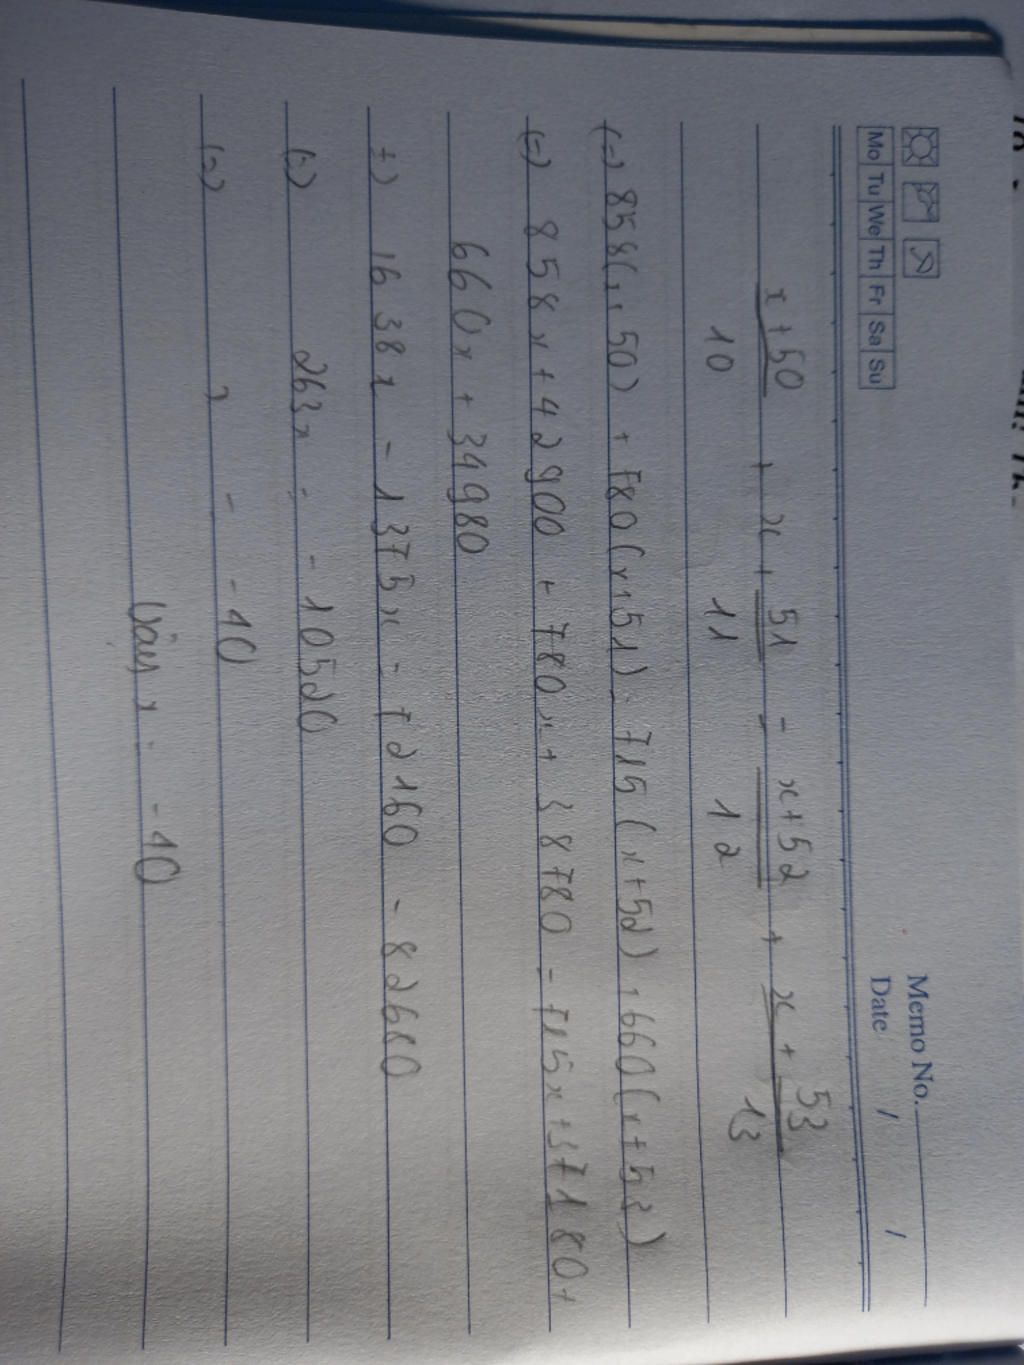 Memo No.
Mo Tu We Th Fr Sa Su Date / /
x+50 + x+51 = x+52 + x+53
10 11 12 13
(=) 858(x+50) + 780(x+51) = 715(x+52) + 660(x+53)
(=) 858x + 42900 + 780x + 39780 = 715x + 37180 +
660x + 34980
(=) 1638x - 1375x = 72160 - 82680
(=) 263x = -10520
(=) x = -40
Vậy x = -40